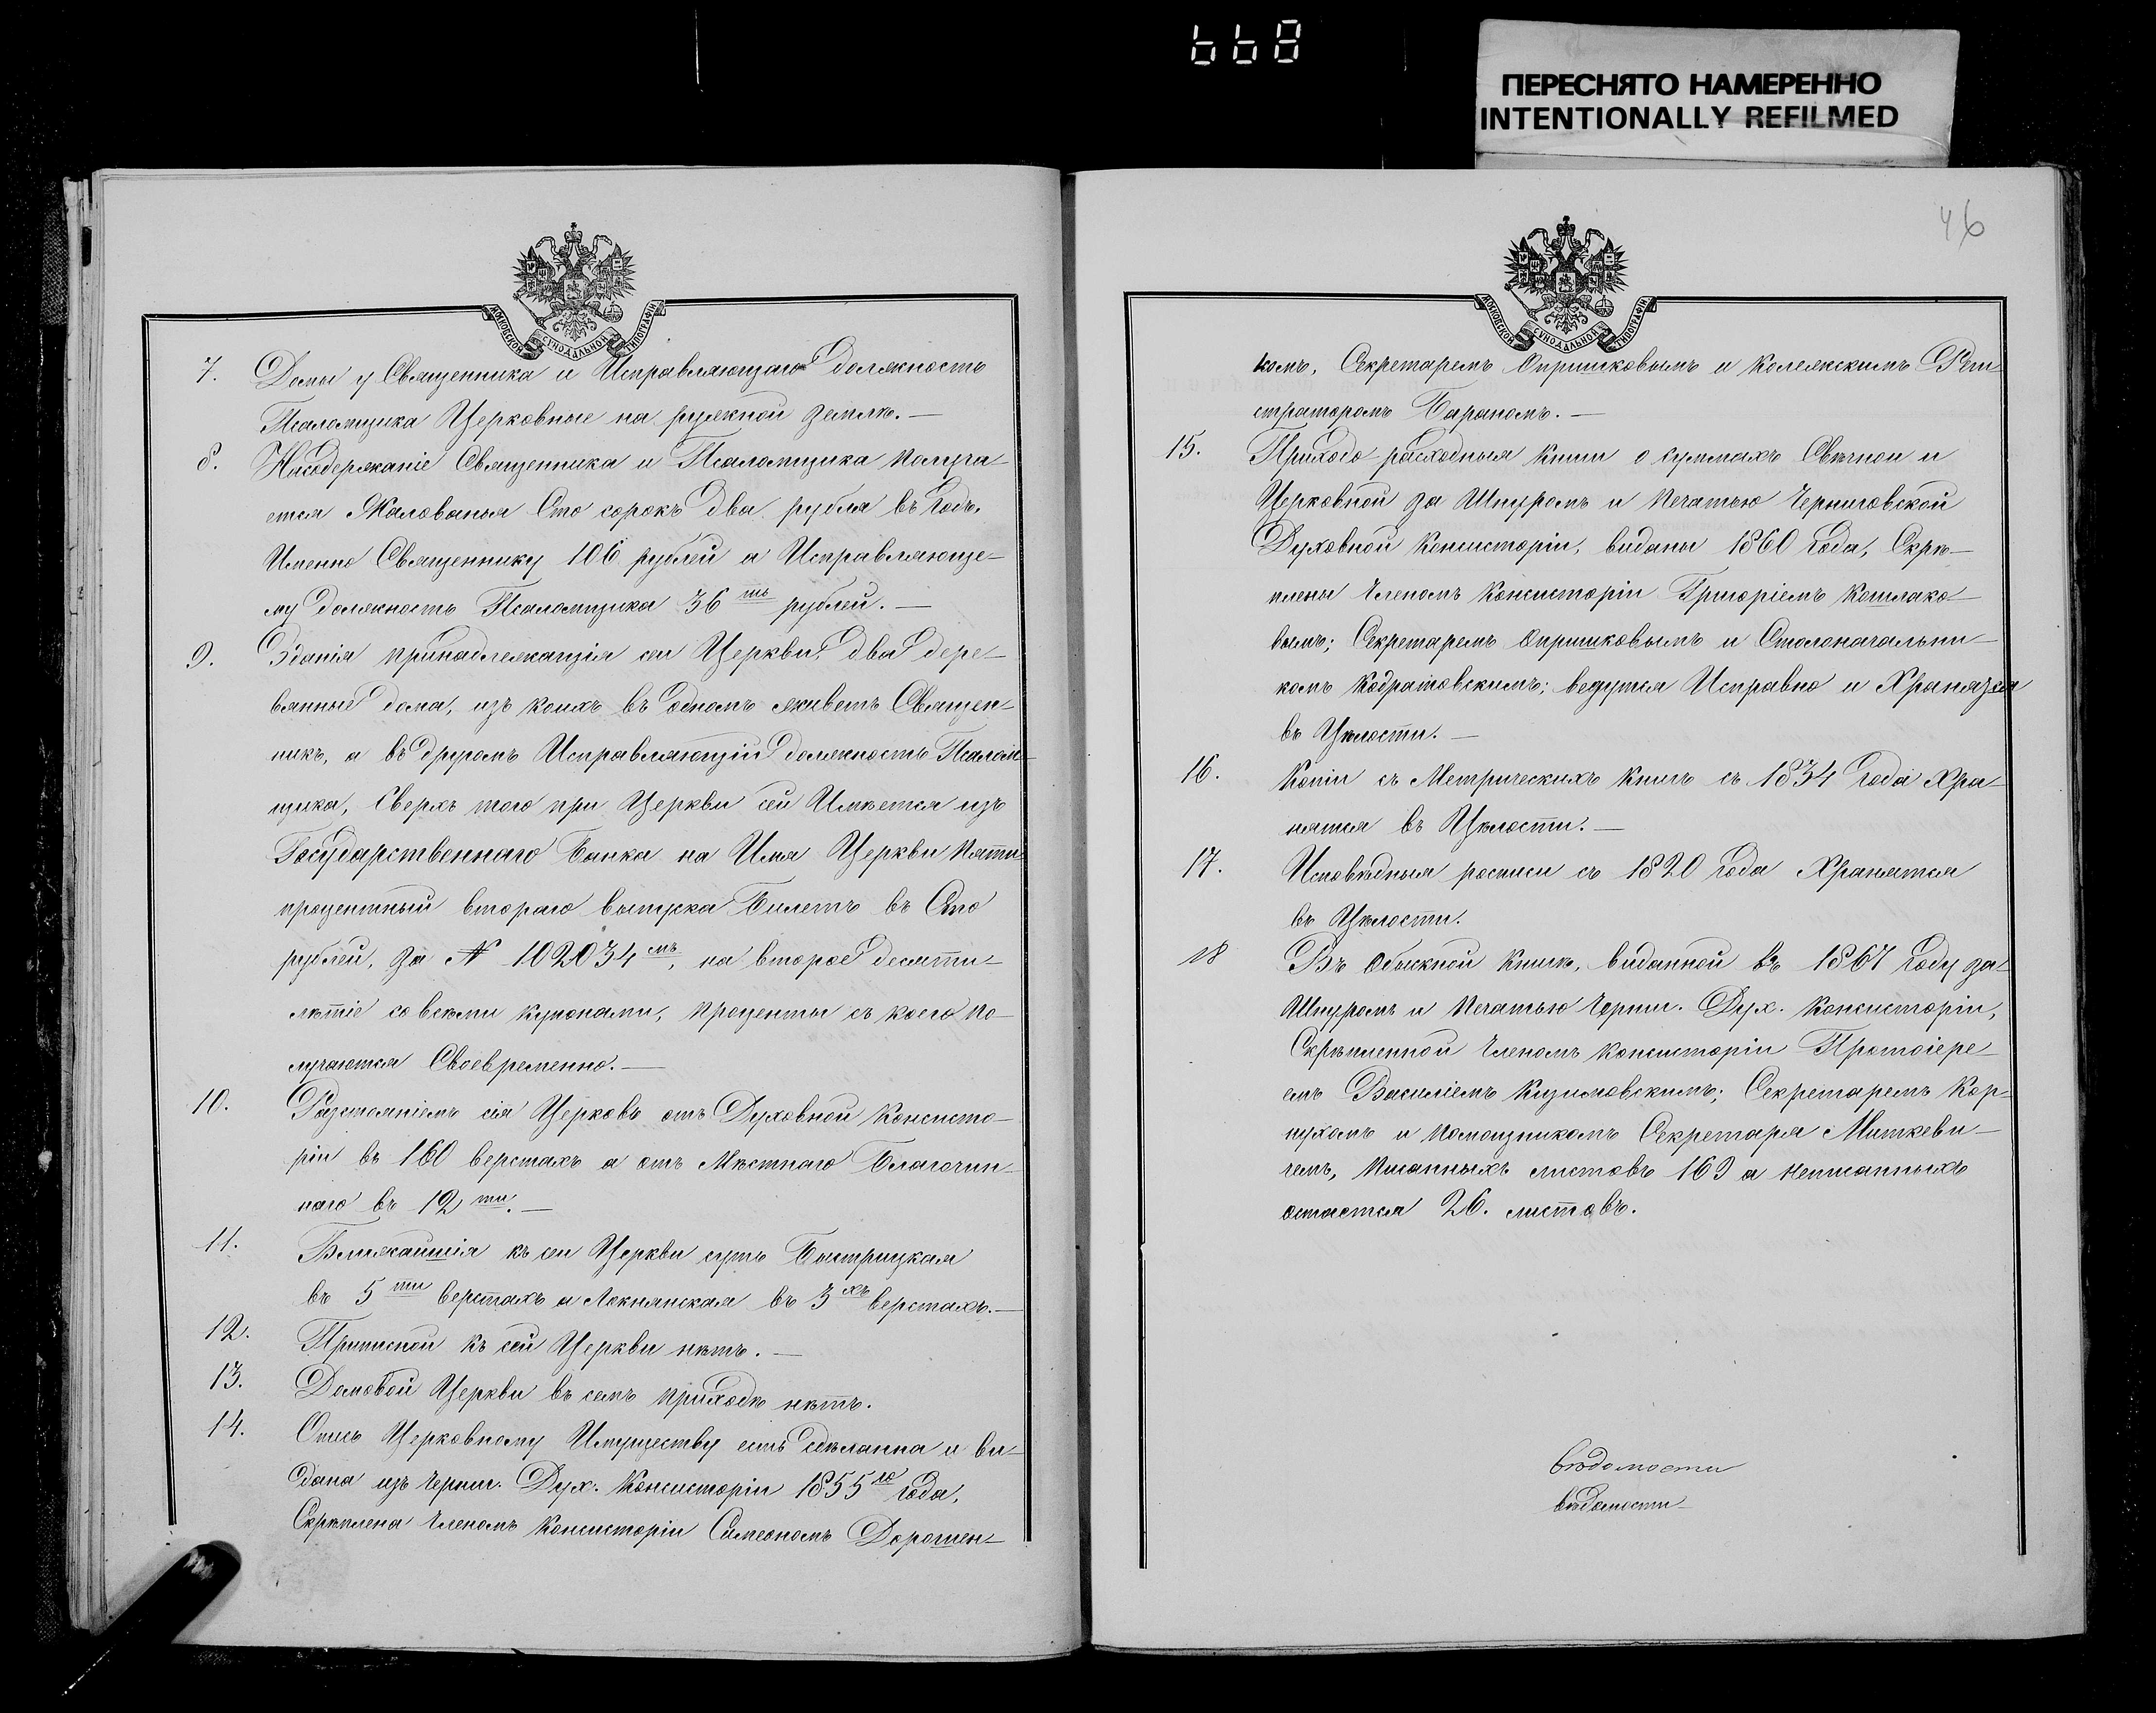 ПЕРЕСНЯТО НАМЕРЕННО
INTENTIONALLY REFILMED
МОСКОВСКОЙ СУНОДАЛЬНОЙ ТИПОГРАФІИ
7. Домы у Священника и Исправляющаго должность
Псаломщика Церковные на ружной землѣ. —
8. Насодержаніе Священника и Псаломщика получа-
ется Жалованья Сто сорокъ два рубля въ годъ.
Именно Священнику 106 рублей а Исправляюще-
му должность Псаломщика 36 ть рублей. —
9. Зданія принадлежащія сей Церкви, два дере-
вянные дома, изъ коихъ въ одномъ живетъ Священ-
никъ, а въ другомъ Исправляющій должность Псалом-
щика, Сверхъ того при Церкви сей Имѣется изъ
Государственнаго Банка на Имя Церкви Пяти
процентный втораго выпуска Билетъ въ Сто
рублей, За № 102034 мъ, на второе десяти-
лѣтіе совсѣми купонами, проценты съ коего по-
лучаются Своевременно. —
10. Разстояніемъ сія Церковь отъ Духовной Консисто-
ріи въ 160 верстахъ а отъ Мѣстнаго Благочин-
наго въ 12 ти. —
11. Ближайшія къ сей Церкви суть Быстрицкая
въ 5 ти верстахъ а Локнянская въ 3 хъ верстахъ. —
12. Приписной къ сей Церкви нѣтъ. —
13. Домовой Церкви въ семъ приходѣ нѣтъ.
14. Опись Церковному Имуществу есть сдѣланна и ви-
дана изъ Черниг. Дух. Консисторіи 1855 го года,
Скрѣплена Членомъ Консисторіи Симеономъ Дорошен-
46
МОСКОВСКОЙ СУНОДАЛЬНОЙ ТИПОГРАФІИ
комъ, Секретаремъ Опришковымъ и Колежскимъ Реги
страторомъ Бараномъ. —
15. Приходо-расходныя книги о суммахъ Свѣчной и
Церковной за Шнуромъ и Печатью Черниговской
Духовной Консисторіи, виданы 1860 года, Скрѣ-
плены Членомъ Консисторіи Григоріемъ Кошлако-
вымъ; Секретаремъ Опришковымъ и Столоначальни-
комъ Кодратовскимъ; ведутся Исправно и Хранятся
въ Цѣлости. —
16. Копіи съ Метрическихъ Книгъ съ 1834 года Хра-
нятся въ Цѣлости. —
17. Исповѣдныя росписи съ 1820 года Хранятся
въ Цѣлости.
18 Въ Обыскной Книгѣ, виданной въ 1867 году за-
Шнуромъ и Печатью Черниг. Дух. Консисторіи,
Скрѣпленной Членомъ Консисторіи Протоіере-
емъ Василіемъ Кизимовскимъ; Секретаремъ Кор-
нухомъ и Помощникомъ Секретаря Миткеви-
чемъ, Писанныхъ листовъ 169 а неписанныхъ
остается 26. листовъ.
вѣдомости
вѣдомости